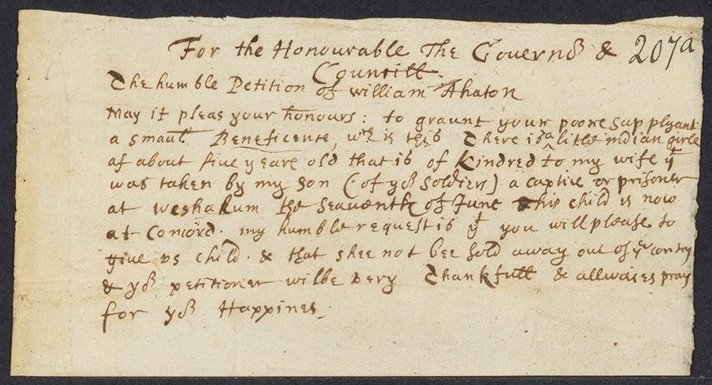 For the Honourable The Governr &
Councill.
207a
The humble Petition of William Ahaton
May it pleas your honours: to graunt your poore suppliant
a small Beneficence, wch is this There is a litle indian girle
of about five yeare old that is of kindred to my wife yt
was taken by my son (of yor soldiers) a captive or prisoner
at weshakum the seaventh of June this child is now
at Concord. my humble request is yt you will please to
give us child. & that shee not bee sold away out of ye contry
& yor petitioner wilbe very Thankfull & allwaies pray
for yor Happines.